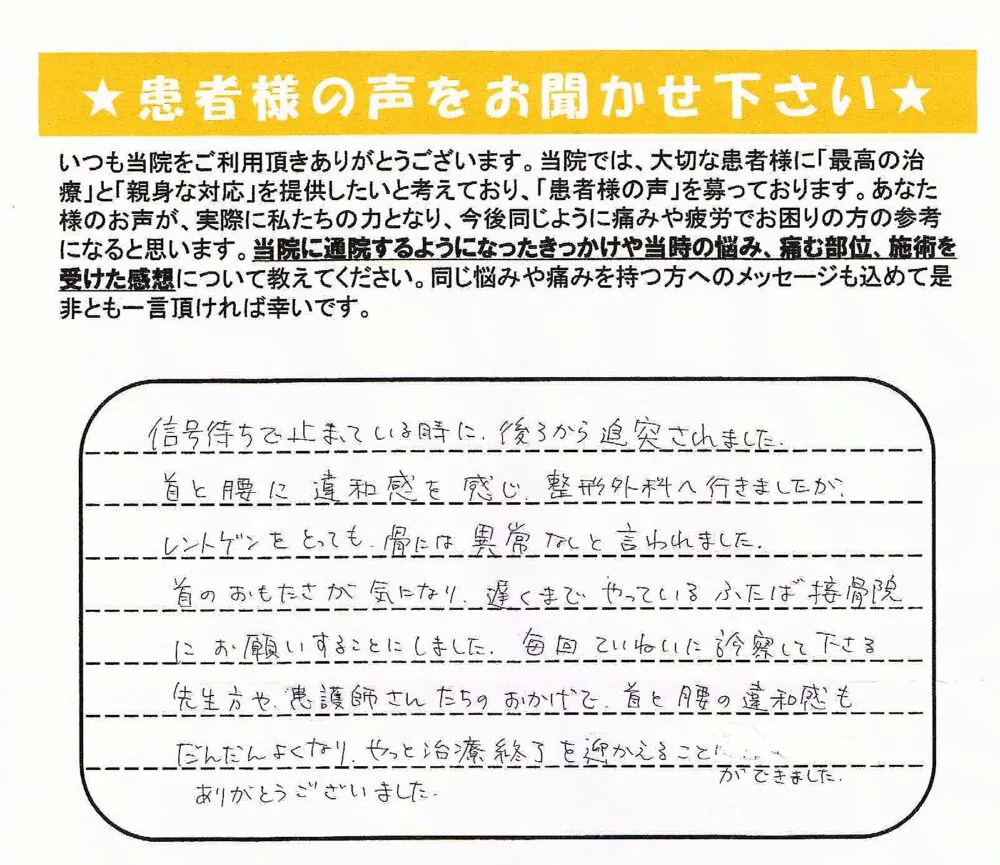 ★患者様の声をお聞かせ下さい★
いつも当院をご利用頂きありがとうございます。当院では、大切な患者様に「最高の治
療」と「親身な対応」を提供したいと考えており、「患者様の声」を募っております。あなた
様のお声が、実際に私たちの力となり、今後同じように痛みや疲労でお困りの方の参考
になると思います。当院に通院するようになったきっかけや当時の悩み、痛む部位、施術を
受けた感想について教えてください。同じ悩みや痛みを持つ方へのメッセージも込めて是
非とも一言頂ければ幸いです。
信号待ちで止まっている時に、後ろから追突されました。
首と腰に違和感を感じ、整形外科へ行きましたが、
レントゲンをとっても、骨には異常なしと言われました。
首のおもたさが気になり、遅くまでやっているふたば接骨院
にお願いすることにしました。毎回ていねいに診察して下さる
先生方や、看護師さんたちのおかげで、首と腰の違和感も
だんだんよくなり、やっと治療終了を迎かえること
ができました。
ありがとうございました。